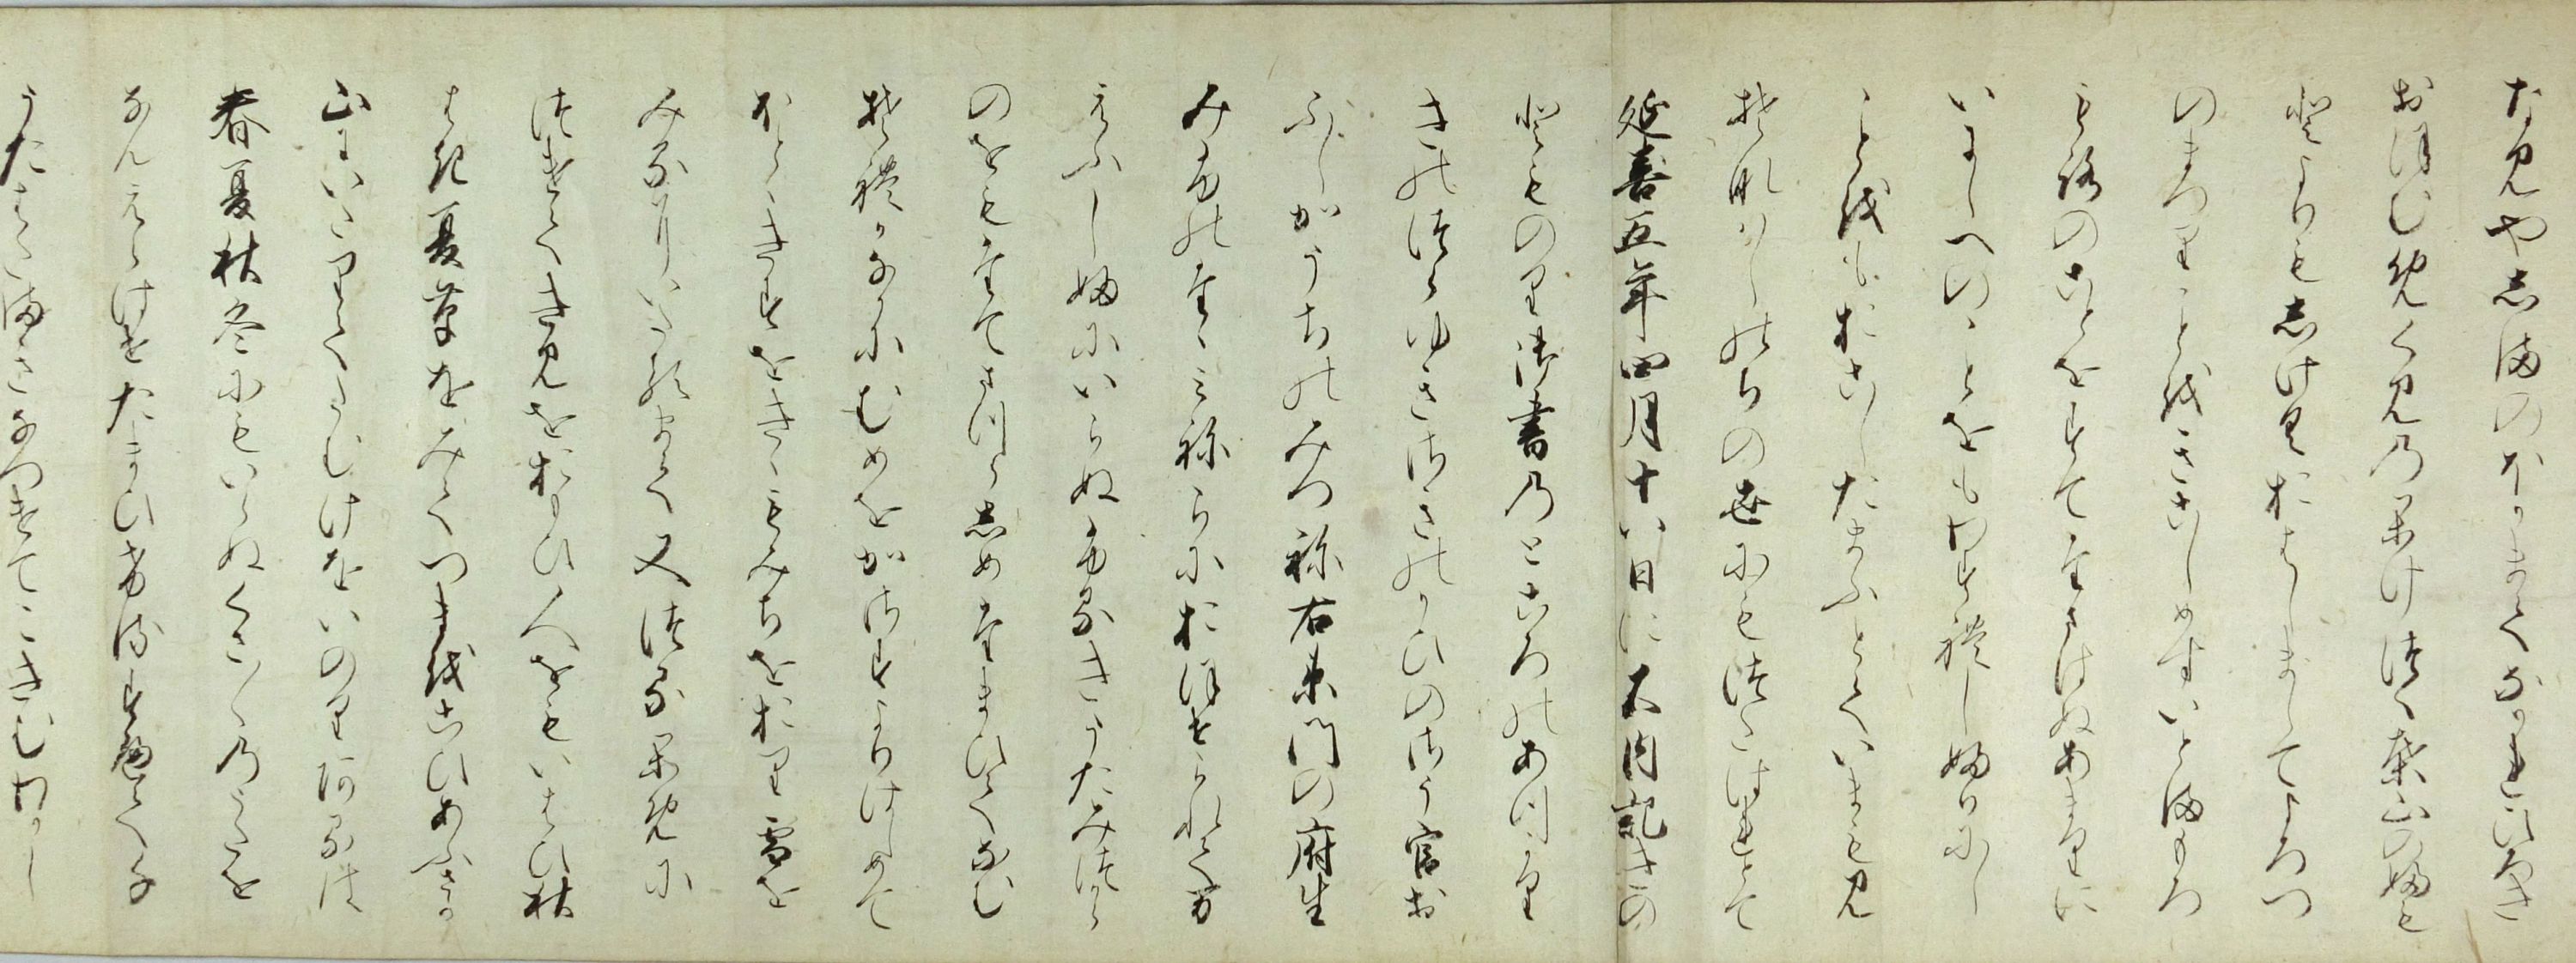 なみやしまのほかまてなかれひろき
おほむめくみのかけつくは山のふもと
よりもしけくおはしましてよろつ
のまつりことをきこしめすいとまもろ
もろのことをすてたまはぬあまりに
いにしへのことをもわすれしふりにし
ことをもおこしたまふとていまもみ
そなはしのちの世にもつたはれとて
延喜五年四月十八日に大内記きの
とものり御書のところのあつかり
きのつらゆきさきのかひのさう官お
ふしかうちのみつね右衛門の府生
みふのたゝみねらにおほせられて万
えふしふにいらぬふるきうたみつから
のをもたてまつらしめたまひてなむ
それかなかにむめをかさすよりはしめて
ほとゝきすをきゝもみちをおり雪を
みるにいたるまて又つるかめに
つけてきみをおもひ人をもいはひ秋
はき夏草をみてつまをこひあふさか
山にいたりてたむけをいのりあるは
春夏秋冬にもいらぬくさくさのうたを
なんえらはせたまひけるすへて千
うたはたまきなつけてこきむわかし